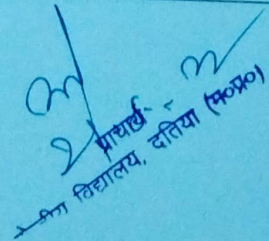 प्राचार्य
विद्यालय, दतिया (म०प्र०)